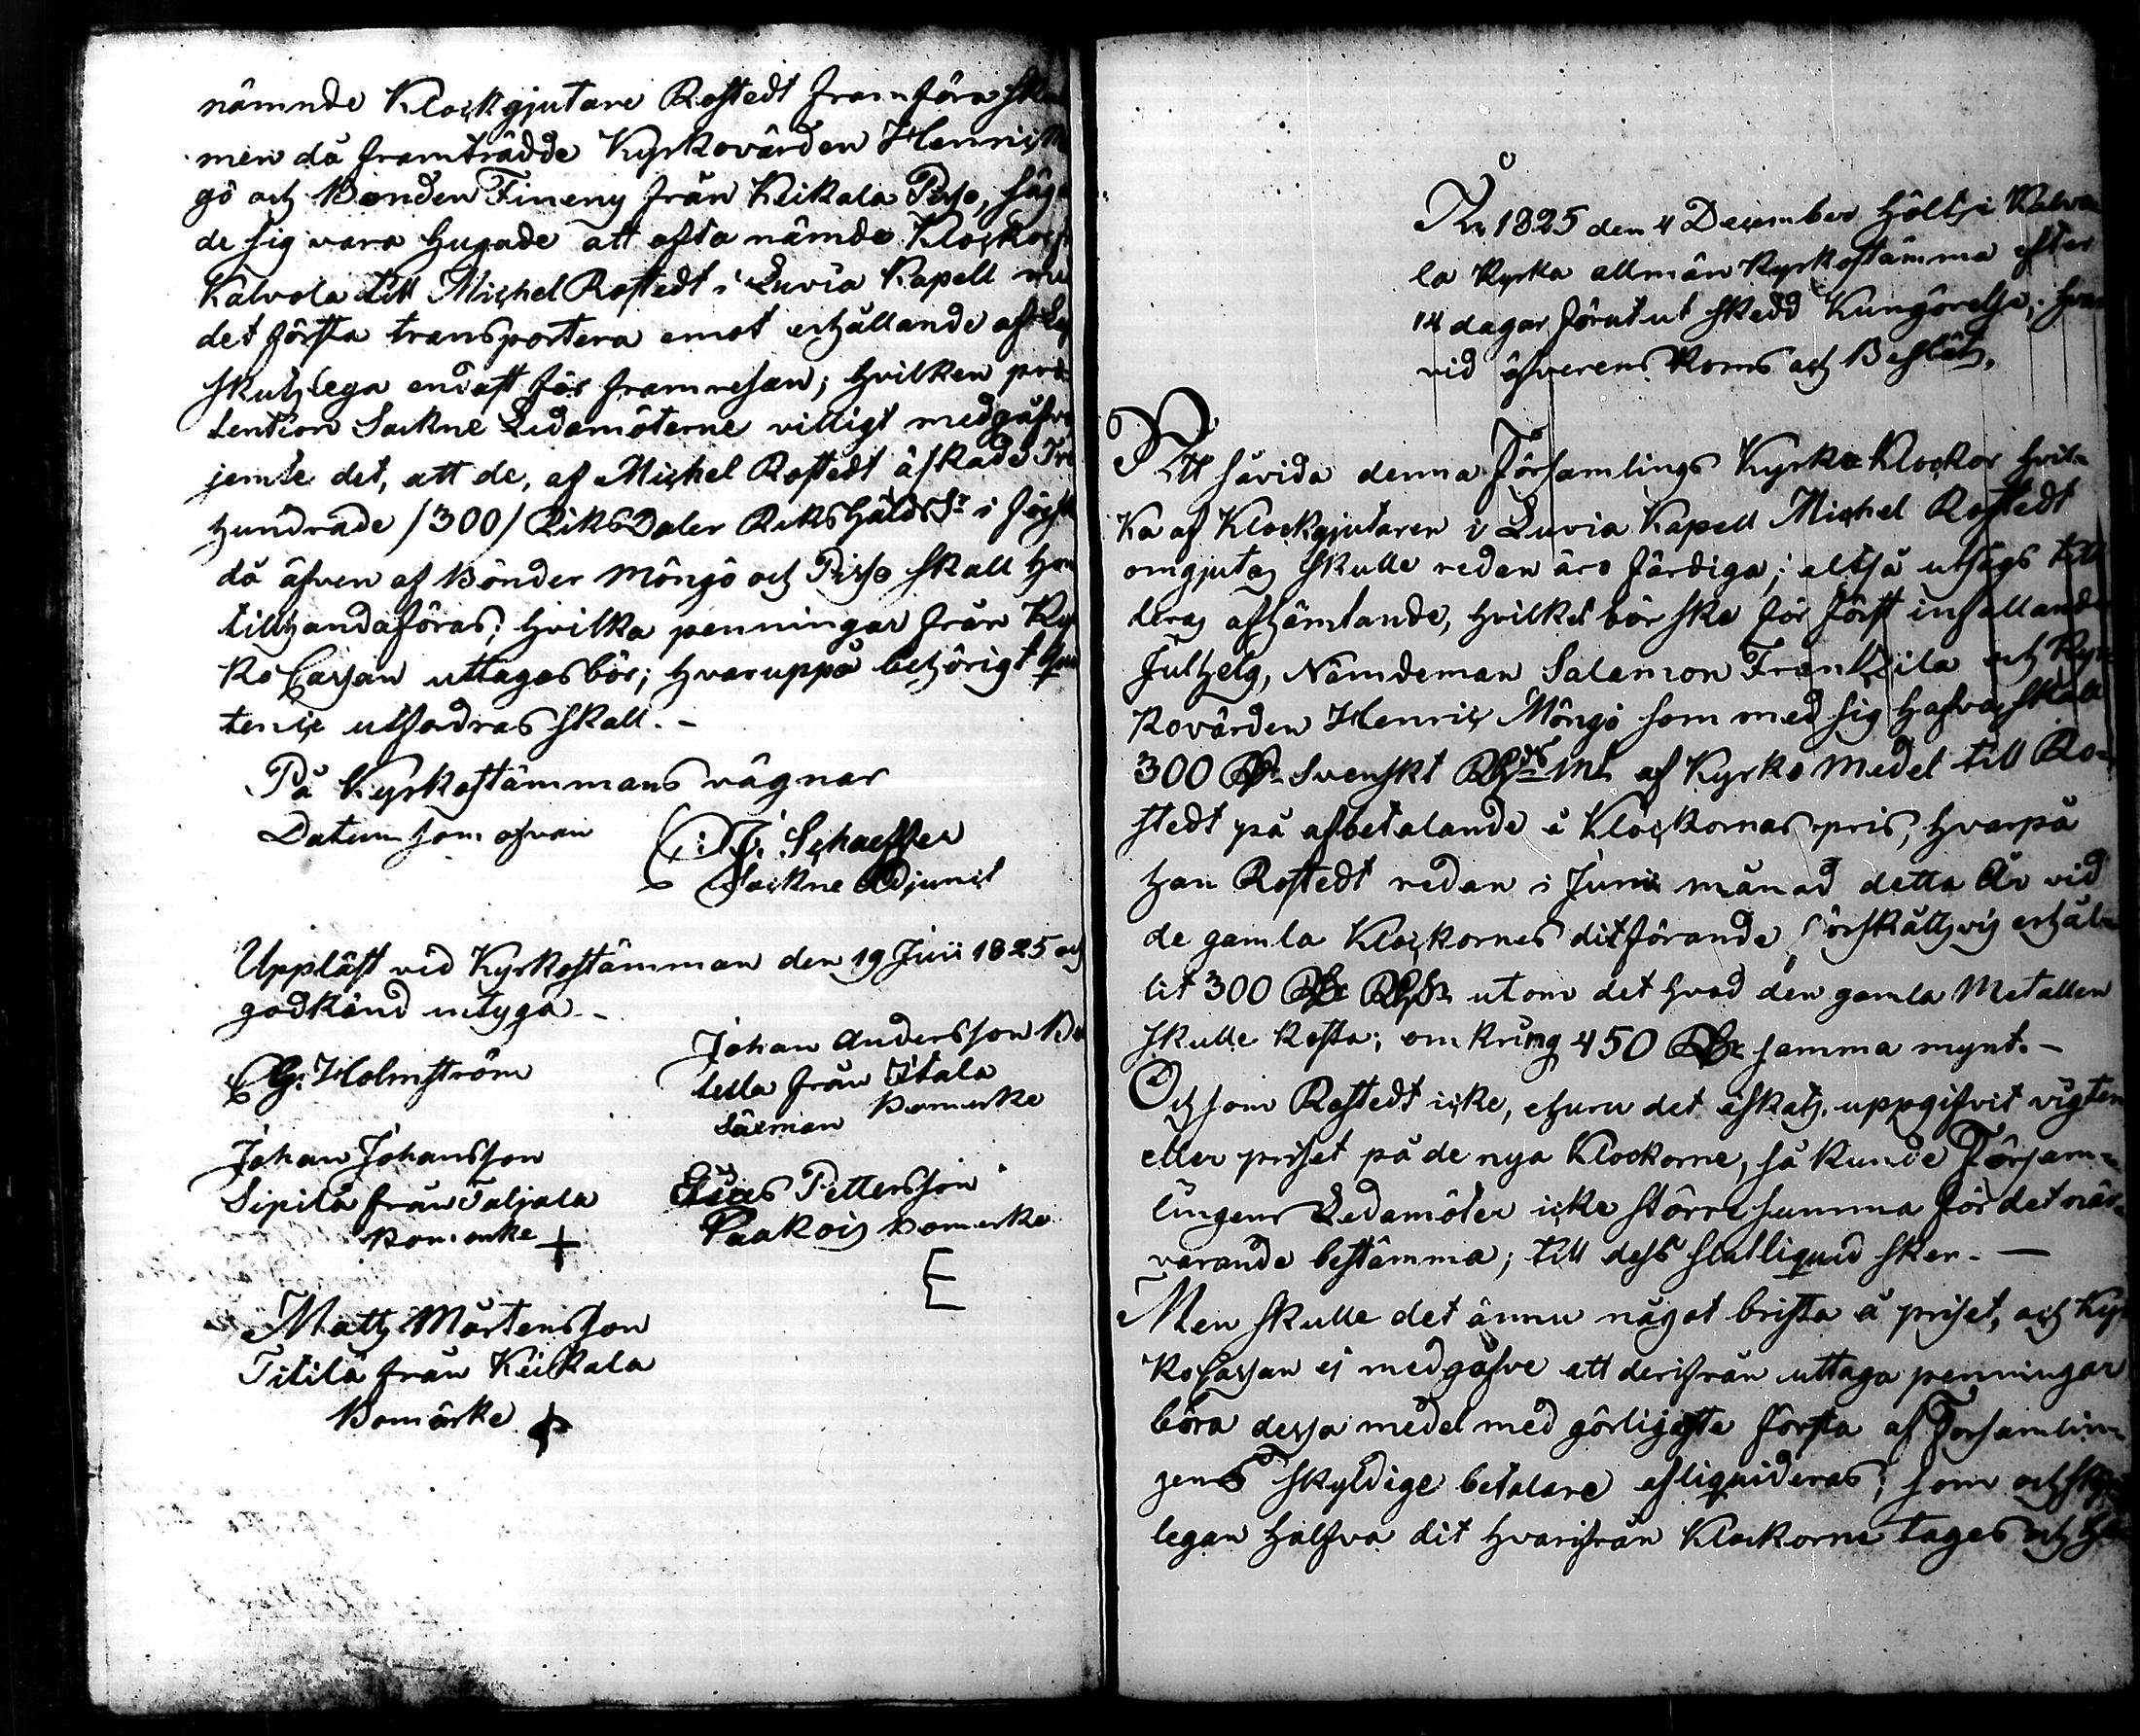 nämnde Klockgjutare Rostedt framföra
men då framträdde Kyrkovärden Henric
gö och Bonden Fineny från Keikala Pirso, säg
de sig vara hugade att ofta nämde Klockor
Kalvola till Michel Rostedt i Luvia Kapell
det första transportera emot erhållande af
skutslega endast för framresan; hvilken pre
tention Sockne Ledamöterne villigt medgåfvo
jemte det, att de, af Michel Rostedt äskade Tre
hundrade /300/ RiksDaler RiksGälds Sr i
då äfven af Bönder Möngö och Pirso skall
tillhandaföras; hvilka penningar från Ky
ko Cassan uttagas bör; hvaruppå behörigt
tence utfodras skall. -
På Kyrkostämmans vägnar
Datum som ofvan
Schaeffer
Sockne Adjunct
Uppläst vid Kyrkostämman den 19 Junii 1825 och
godkänd intyga -
G. Holmström
Johan Andersson
tella från Itala
Säxman bomerke
Johan Johansson
Sipilä från Taljala
bomerke +
Pettersson
bomerke
E
Matts Mårtensson
Titilä från Keikala
Bomärke
År 1825 den 4 December hölts i Kalvo
la Kyrka allmän Kyrkostämma efter
14 dagar förut ut skedd Kungörelse; hvar
vid öfverens koms och Beslöts,
Att såvida denna Församlings Kyrko Klockor hvil-
ka af Klockgjutaren i Luvia Kapell Michel Rostedt
omgjutas skulle redan äro färdiga; altså utsågs till
deras afhämtande, hvilket bör ske för först infallande
Julhelg, Nämdeman Salamon Frantsila och Kyr
kovärden Henric Möngö som med sig hafva skall
300 Rd. Svenskt Rgds mt af Kyrko medel till Ro-
stedt på afbetalande å Klockornas pris, hvarpå
han Rostedt redan i Junii månad detta År vid
de gamla Klockornes ditförande, förskåttsvis erhål-
lit 300 utom det hvad den gamla Metallen
skulle kosta; omkring 450 samma mynt. -
Och som Rostedt icke, ehuru det äskats, uppgifvit vigten
eller priset på de nya Klockorne, så kunde Försam-
lingens Ledamöter icke större summa för det när-
varande bestämma; till dess slutliquid sker. -
Men skulle det ännu något brista å priset, och Kyr
ko Cassan ej medgåfve att derifrån uttaga penningar
böra dessa medel med görligaste första af Församlin-
gens skyldige betalare afliqvideras; som och
legan halfva dit hvarifrån Klockorne tages och